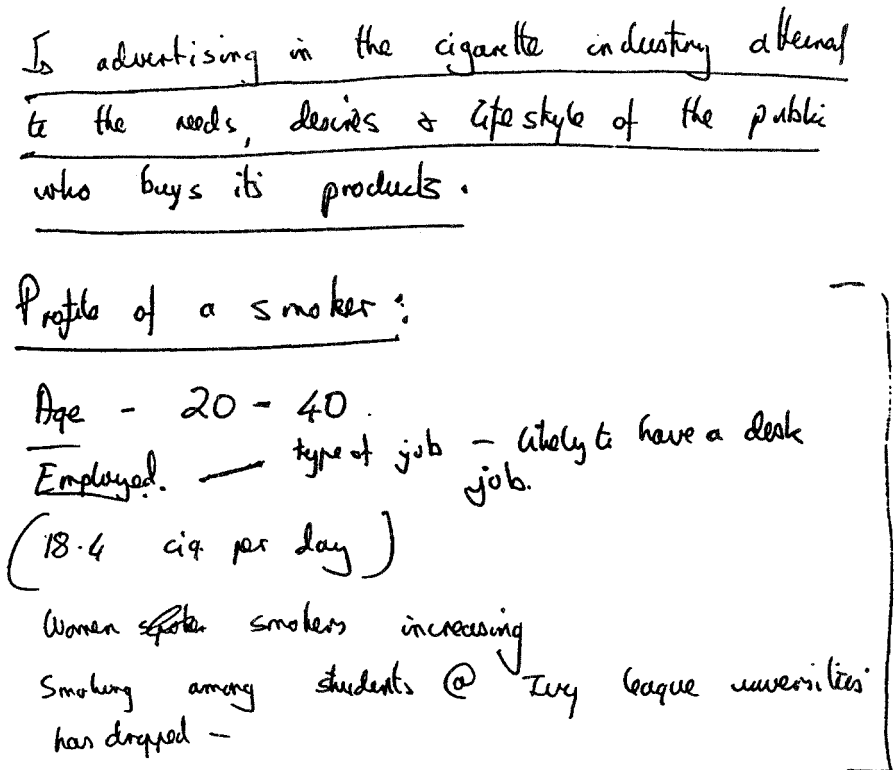 Is advertising in the cigarette industry
to the needs, desires & lifestyle of the public
who buys its products.
Profile of a smoker:
Age - 20 - 40.
Employed. — type of job - likely to have a desk
job.
(18.4 cig per day)
Women smokers increasing
Smoking among students @ Ivy league universities
has dropped -